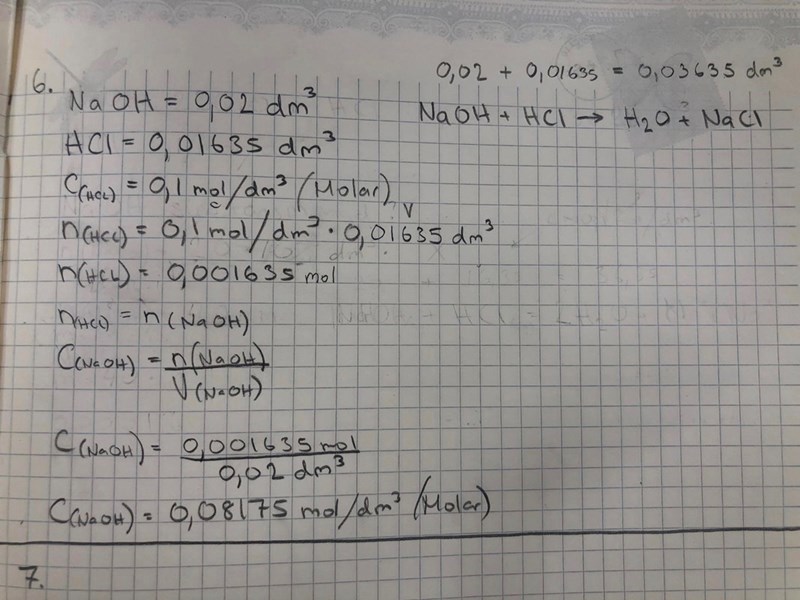 0,02 + 0,01635 = 0,03635 dm³
6.
NaOH = 0,02 dm³
NaOH + HCl → H₂O + NaCl
HCl = 0,01635 dm³
C(HCl) = 0,1 mol/dm³ (Molar)
c
V
n(HCl) = 0,1 mol/dm³ · 0,01635 dm³
n(HCl) = 0,001635 mol
n(HCl) = n(NaOH)
C(NaOH) = n(NaOH)
V(NaOH)
C(NaOH) = 0,001635 mol
0,02 dm³
C(NaOH) = 0,08175 mol/dm³ (Molar)
7.